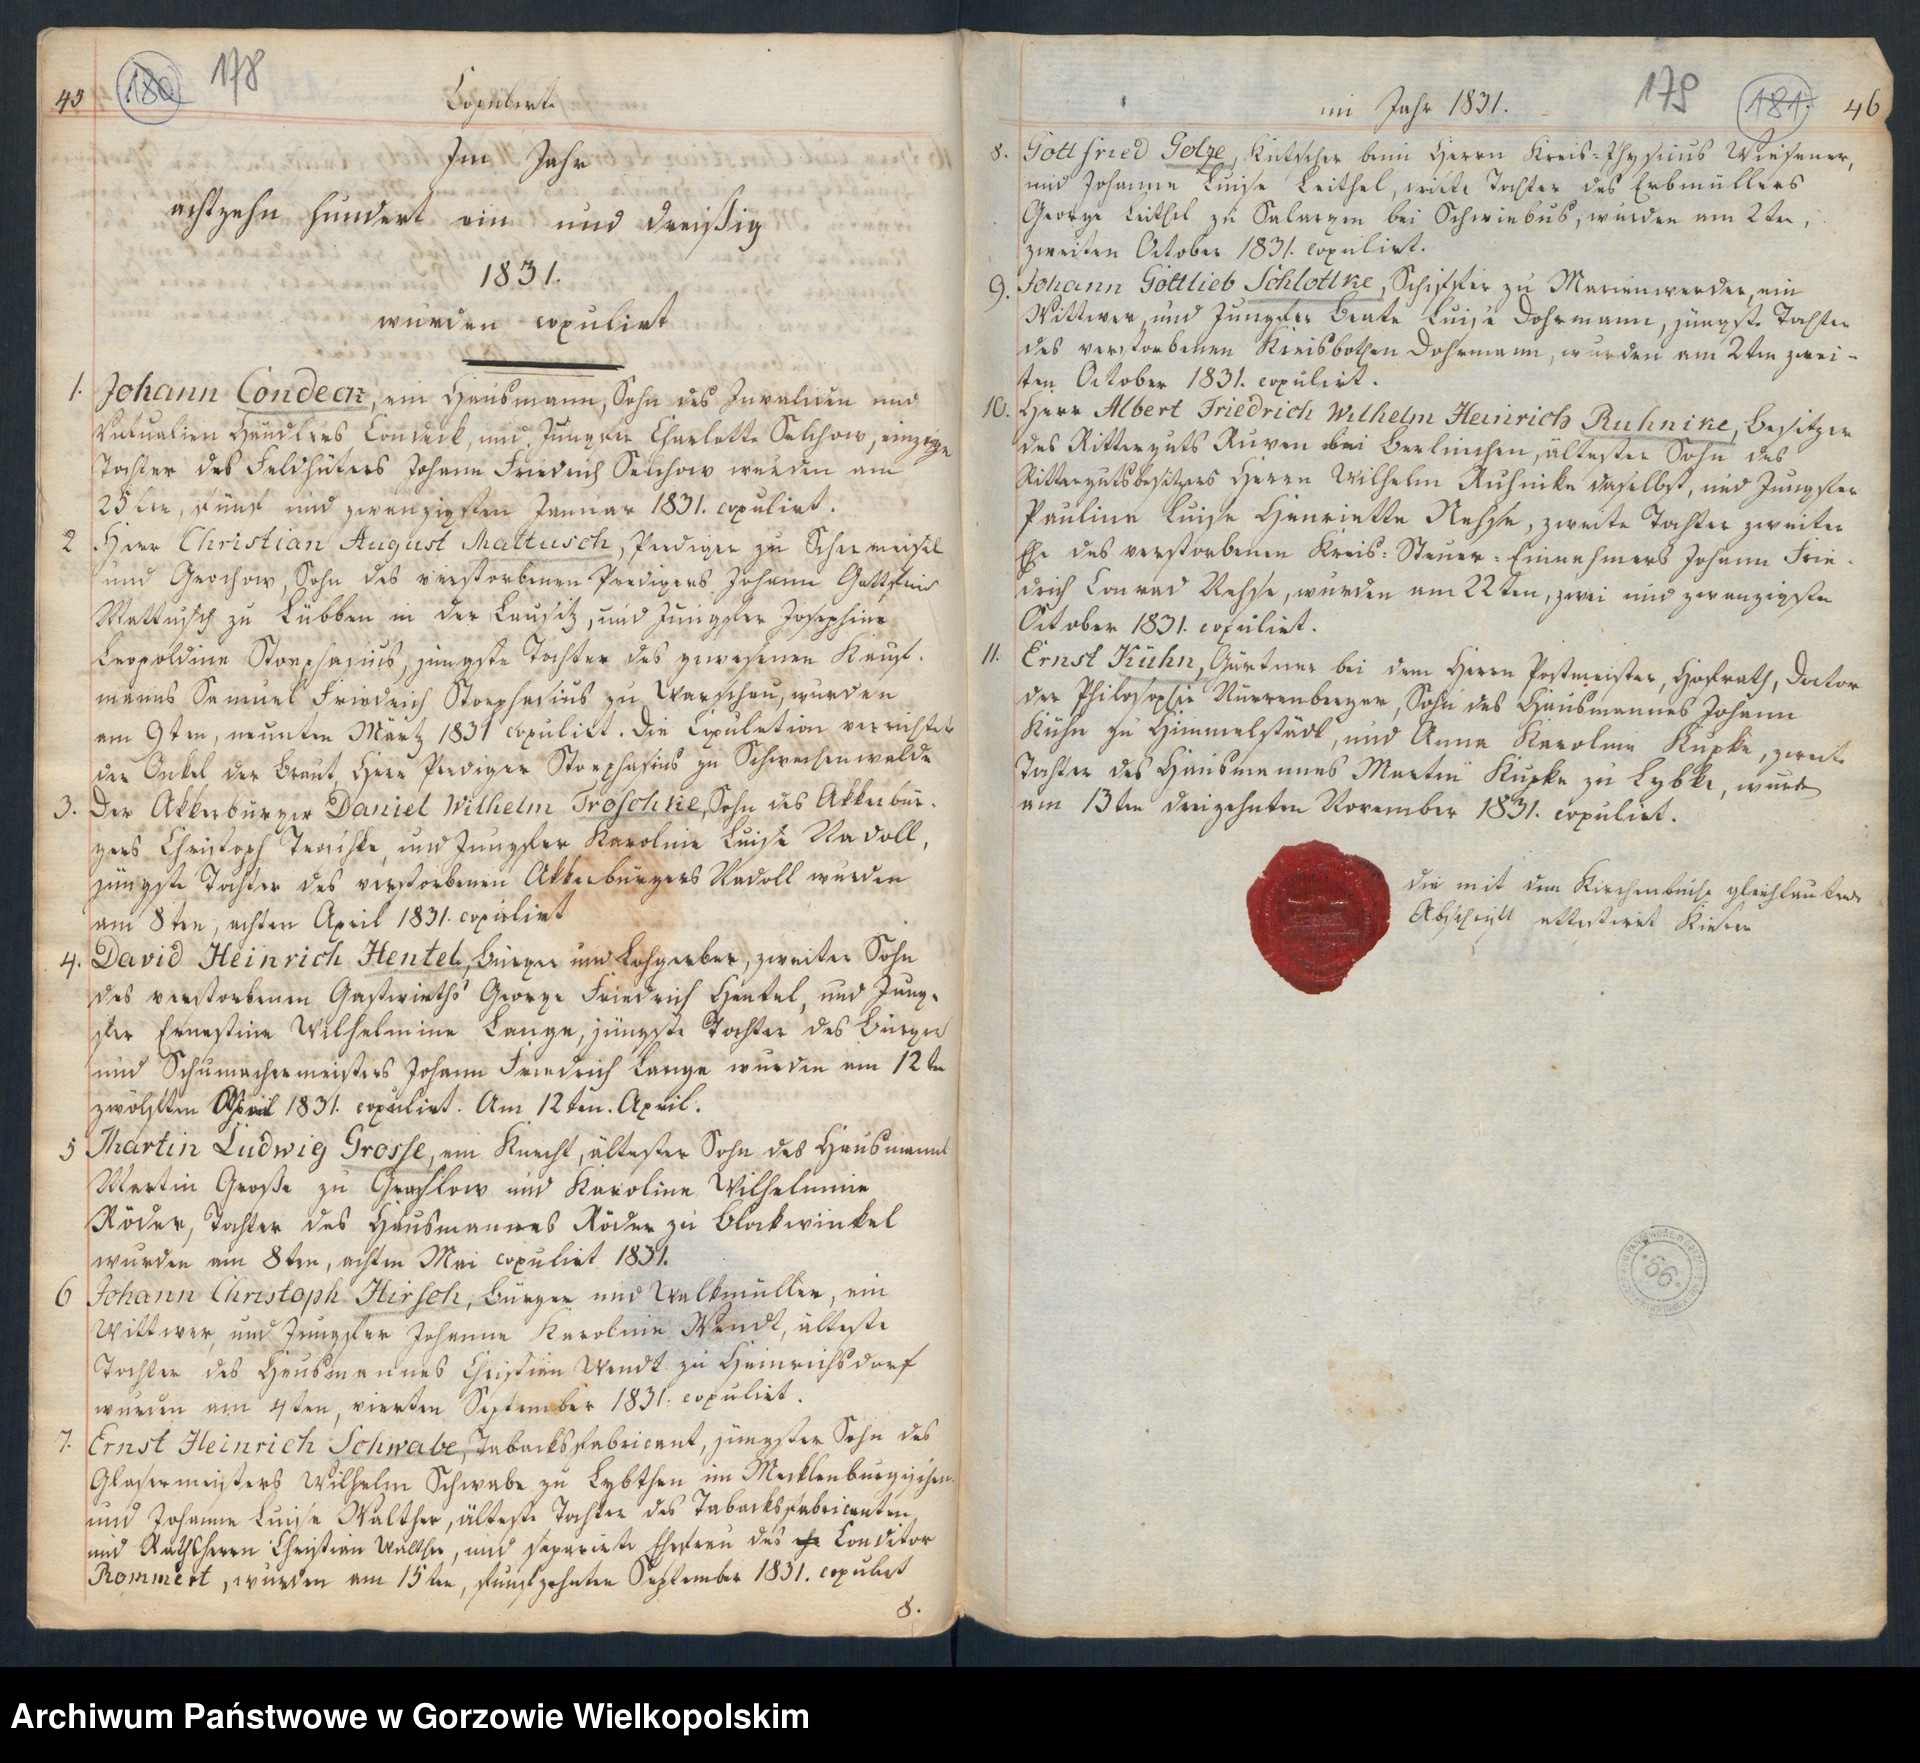 45 180 178
Copulirte
Im Jahr
achtzehn hundert ein und dreißig
1831.
wurden copulirt
1. Johann Condeck, ein Hausmann, Sohn des Invaliden und
Victualien Händlers Condeck, und Jungfer Charlotte Selchow, einzige
Tochter des Feldhüters Johann Friedrich Selchow wurden am
25ten, fünf und zwanzigsten Januar 1831. copulirt.
2 Herr Christian August Mattusch, Prediger zu Schermeisel
und Grochow, Sohn des verstorbenen Predigers Johann Gottfried
Mattusch zu Lübben in der Lausitz, und Jungfer Josephine
Leopoldine Stoephasius, jüngste Tochter des gewesenen Kauf-
manns Samuel Friedrich Stoephasius zu Warschau, wurden
am 9ten, neunten März 1831 copulirt. Die Copulation verrichtet
der Onkel der Braut, Herr Prediger Stoephasius zu Schwachenwalde
3. Der Akkerbürger Daniel Wilhelm Troschke, Sohn des Akkerbür-
gers Christoph Troschke, und Jungfer Karoline Luise Nadoll,
jüngste Tochter des verstorbenen Akkerbürgers Nadoll wurden
am 8ten, achten April 1831. copulirt
4. David Heinrich Hentel, Bürger und Lohgerber, zweiter Sohn
des verstorbenen Gastwirths George Friedrich Hentel, und Jung-
fer Ernestine Wilhelmine Lange, jüngste Tochter des Bürger
und Schumachermeisters Johann Friedrich Lange wurden am 12ten
zwölften April 1831. copulirt. Am 12ten. April.
5 Martin Ludwig Grosse, ein Knecht, ältester Sohn des Hausmanns
Martin Große zu Gralow und Karoline Wilhelmine
Röder, Tochter des Hausmannes Röder zu Blockwinkel
wurden am 8ten, achten Mai copulirt 1831.
6 Johann Christoph Hirsch, Bürger und Walkmüller, ein
Wittwer, und Jungfer Johanne Karoline Wendt, älteste
Tochter des Hausmannes Christian Wendt zu Heinrichsdorf
wurden am 4ten, vierten September 1831. copulirt.
7. Ernst Heinrich Schwabe, Tabacksfabricant, jüngster Sohn des
Glasermeisters Wilhelm Schwabe zu Lybthen im Mecklenburgischen
und Johanne Luise Walther, älteste Tochter des Tabacksfabricanten
und Rathsherrn Christian Walther, und separirte Ehefrau des Conditor
Rommert, wurden am 15ten, funfzehnten September 1831. copulirt
8.
im Jahr 1831. 179 181. 46
8. Gottfried Golze, Kutscher beim Herrn Kreis-Physicus Wiesener,
und Johanne Luise Leithel, dritte Tochter des Erbmüllers
George Leithel zu Salargen bei Schwiebus, wurden am 2ten,
zweiten October 1831. copulirt.
9. Johann Gottlieb Schlottke, Schiffer zu Marienwerder, ein
Wittwer, und Jungfer Beate Luise Dohrmann, jüngste Tochter
des verstorbenen Kreisbothen Dohrmann, wurden am 2ten zwei-
ten October 1831. copulirt.
10. Herr Albert Friedrich Wilhelm Heinrich Ruhnike, Besitzer
des Ritterguts Ruwen bei Berlinchen, ältester Sohn des
Rittergutsbesitzers Herrn Wilhelm Ruhnike daselbst, und Jungfer
Pauline Luise Henriette Rehse, zweite Tochter zweiter
Ehe des verstorbenen Kreis-Steuer-Einnehmers Johann Frie-
drich Conrad Rehse, wurden am 22ten, zwei und zwanzigsten
October 1831. copulirt.
11. Ernst Kühn, Gärtner bei dem Herrn Postmeister, Hofrath, Doctor
der Philosophie Nürrenberger, Sohn des Hausmannes Johann
Kühn zu Himmelstädt, und Anna Karoline Kupke, zweite
Tochter des Hausmannes Martin Kupke zu Lybke, wurde
am 13ten dreizehnten November 1831. copulirt.
die mit dem Kirchenbuche gleichlautende
Abschrift attestiret
66
Archiwum Państwowe w Gorzowie Wielkopolskim